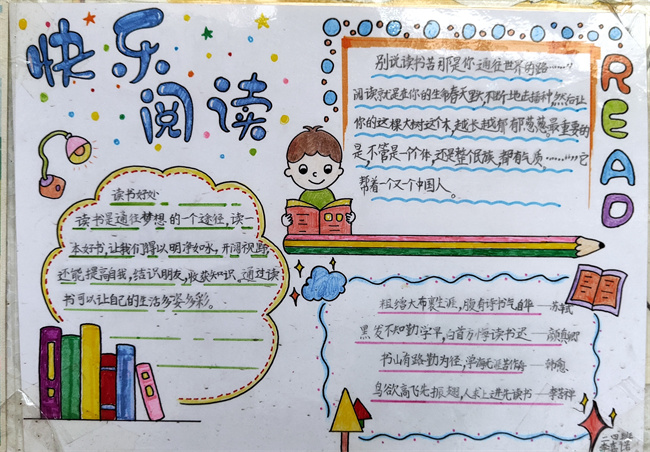 快乐
阅读
READ
别说读书苦那是你通往世界的路……"
阅读就是在你的生命春天里,不断地去播种,然后让
你的这棵大树这个木,越长越郁郁葱葱最重要的
是,不管是一个个体,还是整个民族,都有气质……"它
帮着一个又一个中国人。
读书好处
读书是通往梦想的一个途径,读一
本好书,让我们得以明净如水,开阔视野
还能提高自我,结识朋友,收获知识,通过读
书可以让自己的生活多姿多彩。
粗缯大布裹生涯,腹有诗书气自华——苏轼
黑发不知勤学早,白首方悔读书迟——颜真卿
书山有路勤为径,学海无涯苦作舟——韩愈
鸟欲高飞先振翅,人求上进先读书——李苦禅
二四班